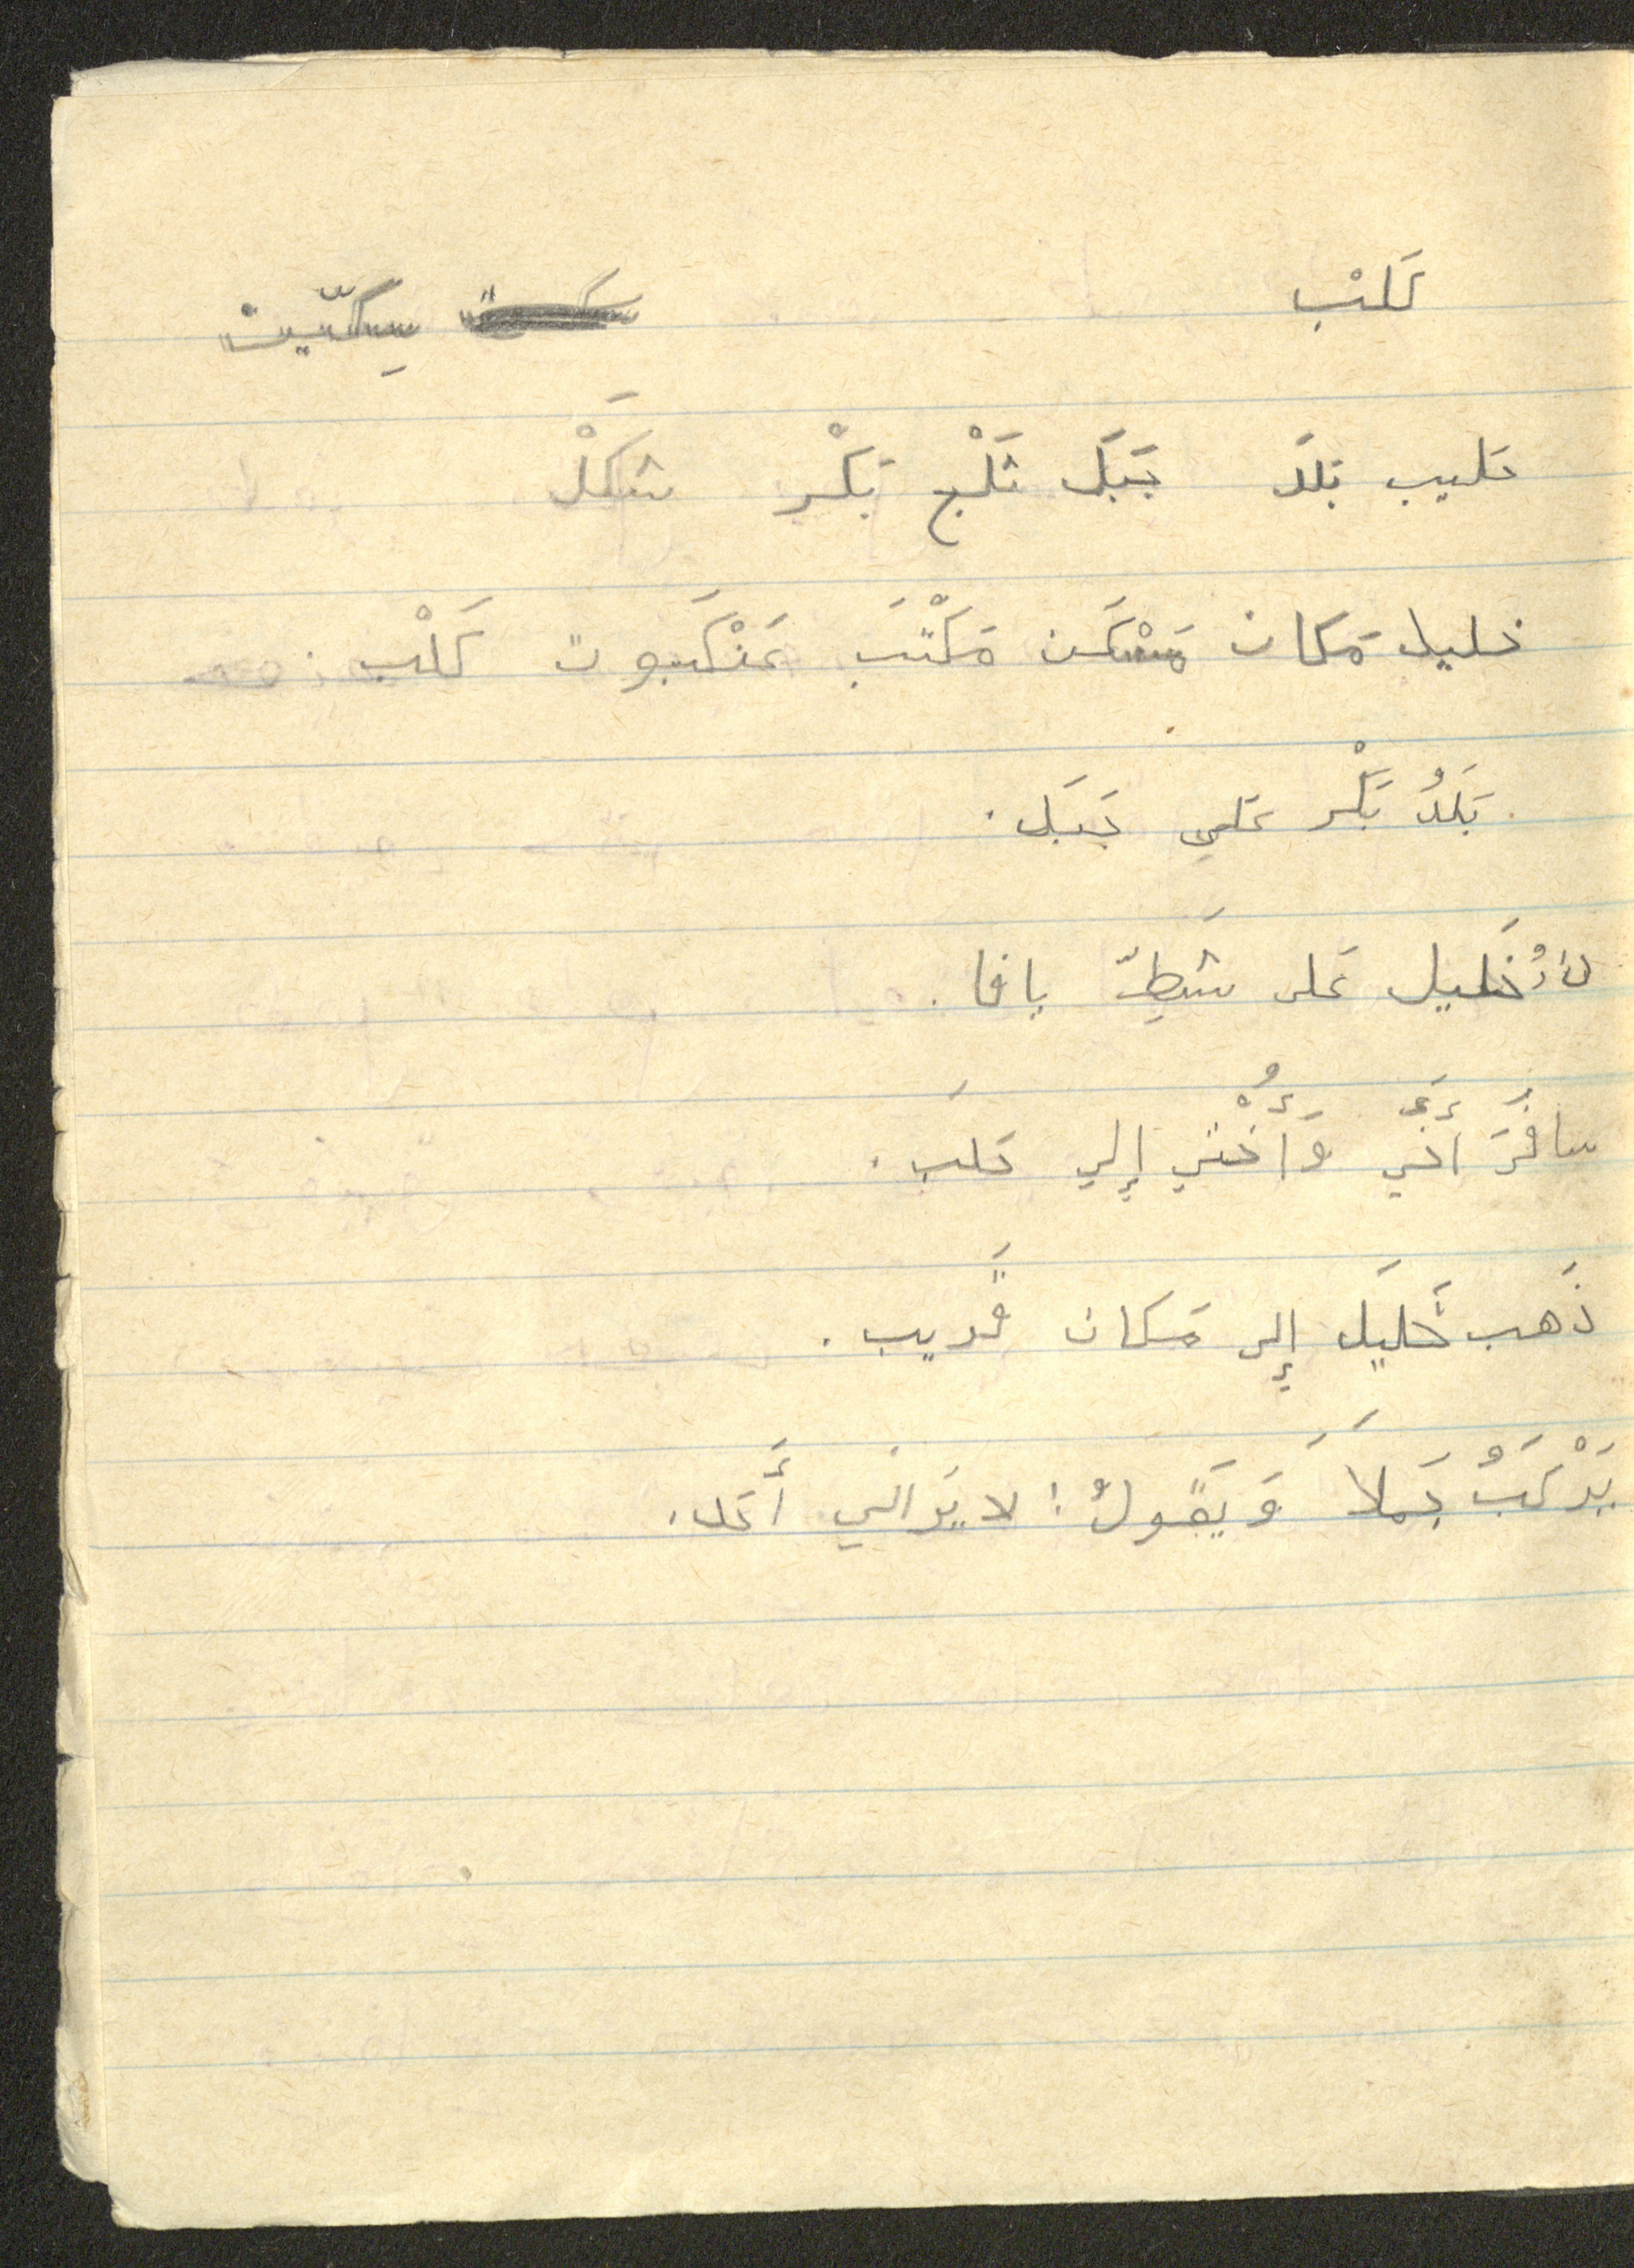 كَلْب سِكّيت
حَليب بَلَد جَبَل ثَلْج بَكْر شَكْل
خليل مَكان مَسْكَن مَكْتَب عَنْكَبوت كَلْب
بَلَدُ بَكْر عَلى جَبَل.
خَليل عَلى شَطِّ يافا.
سافَرَ أَخي وَأُخْتي إِلى حَلَب.
ذَهَب خَليل إِلى مَكان قَريب.
يَرْكَبُ جَمَلاً وَيَقولُ: لا يَراني أَحَد.